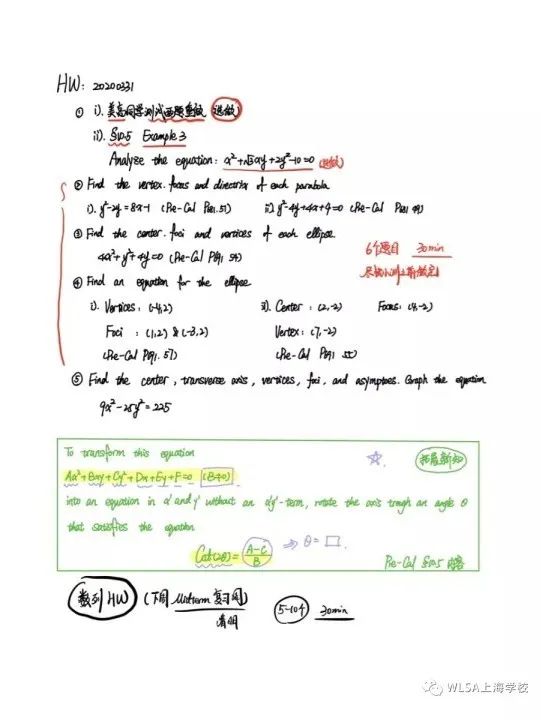 HW: 20200331
① i). 美高同学测试两题重做 (选做)
ii). §10.5 Example 3
Analyse the equation: x²+√3xy+2y²-10=0 (选做)
② Find the vertex, focus and directrix of each parabola
i). y²-2y=8x-1 (Pre-Cal P981. 51) ii). y²-4y+4x+4=0 (Pre-Cal P981 49)
③ Find the center, foci and vertices of each ellipse
4x²+y²+4y=0 (Pre-Cal P991 54)
6个题目 30min
④ Find an equation for the ellipse
i). Vertices: (-4,2) ii). Center: (2,-2) Focus: (4,-2)
Foci: (1,2) & (-3,2) Vertex: (7,-2)
(Pre-Cal P991. 57) (Pre-Cal P991 55)
⑤ Find the center, transverse axis, vertices, foci, and asymptoes. Graph the equation
9x²-25y²=225
To transform this equation
拓展新知
Ax²+Bxy+Cy²+Dx+Ey+F=0 (B≠0)
into an equation in x' and y' without an x'y'-term, rotate the axis trough an angle θ
that satisfies the equation
Cot(2θ)=(A-C)/B ⇒ θ=□.
Pre-Cal §10.5 内容
数列 HW (下周 Midterm 复习周) 5-104 30min
清明
WLSA上海学校